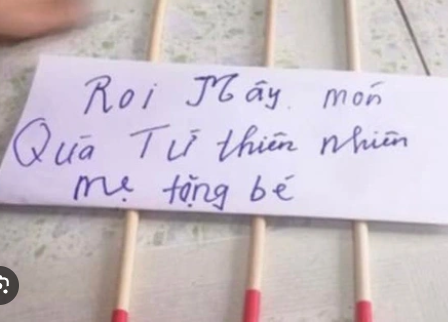 Roi Mây món
Quà Từ thiên nhiên
mẹ tặng bé